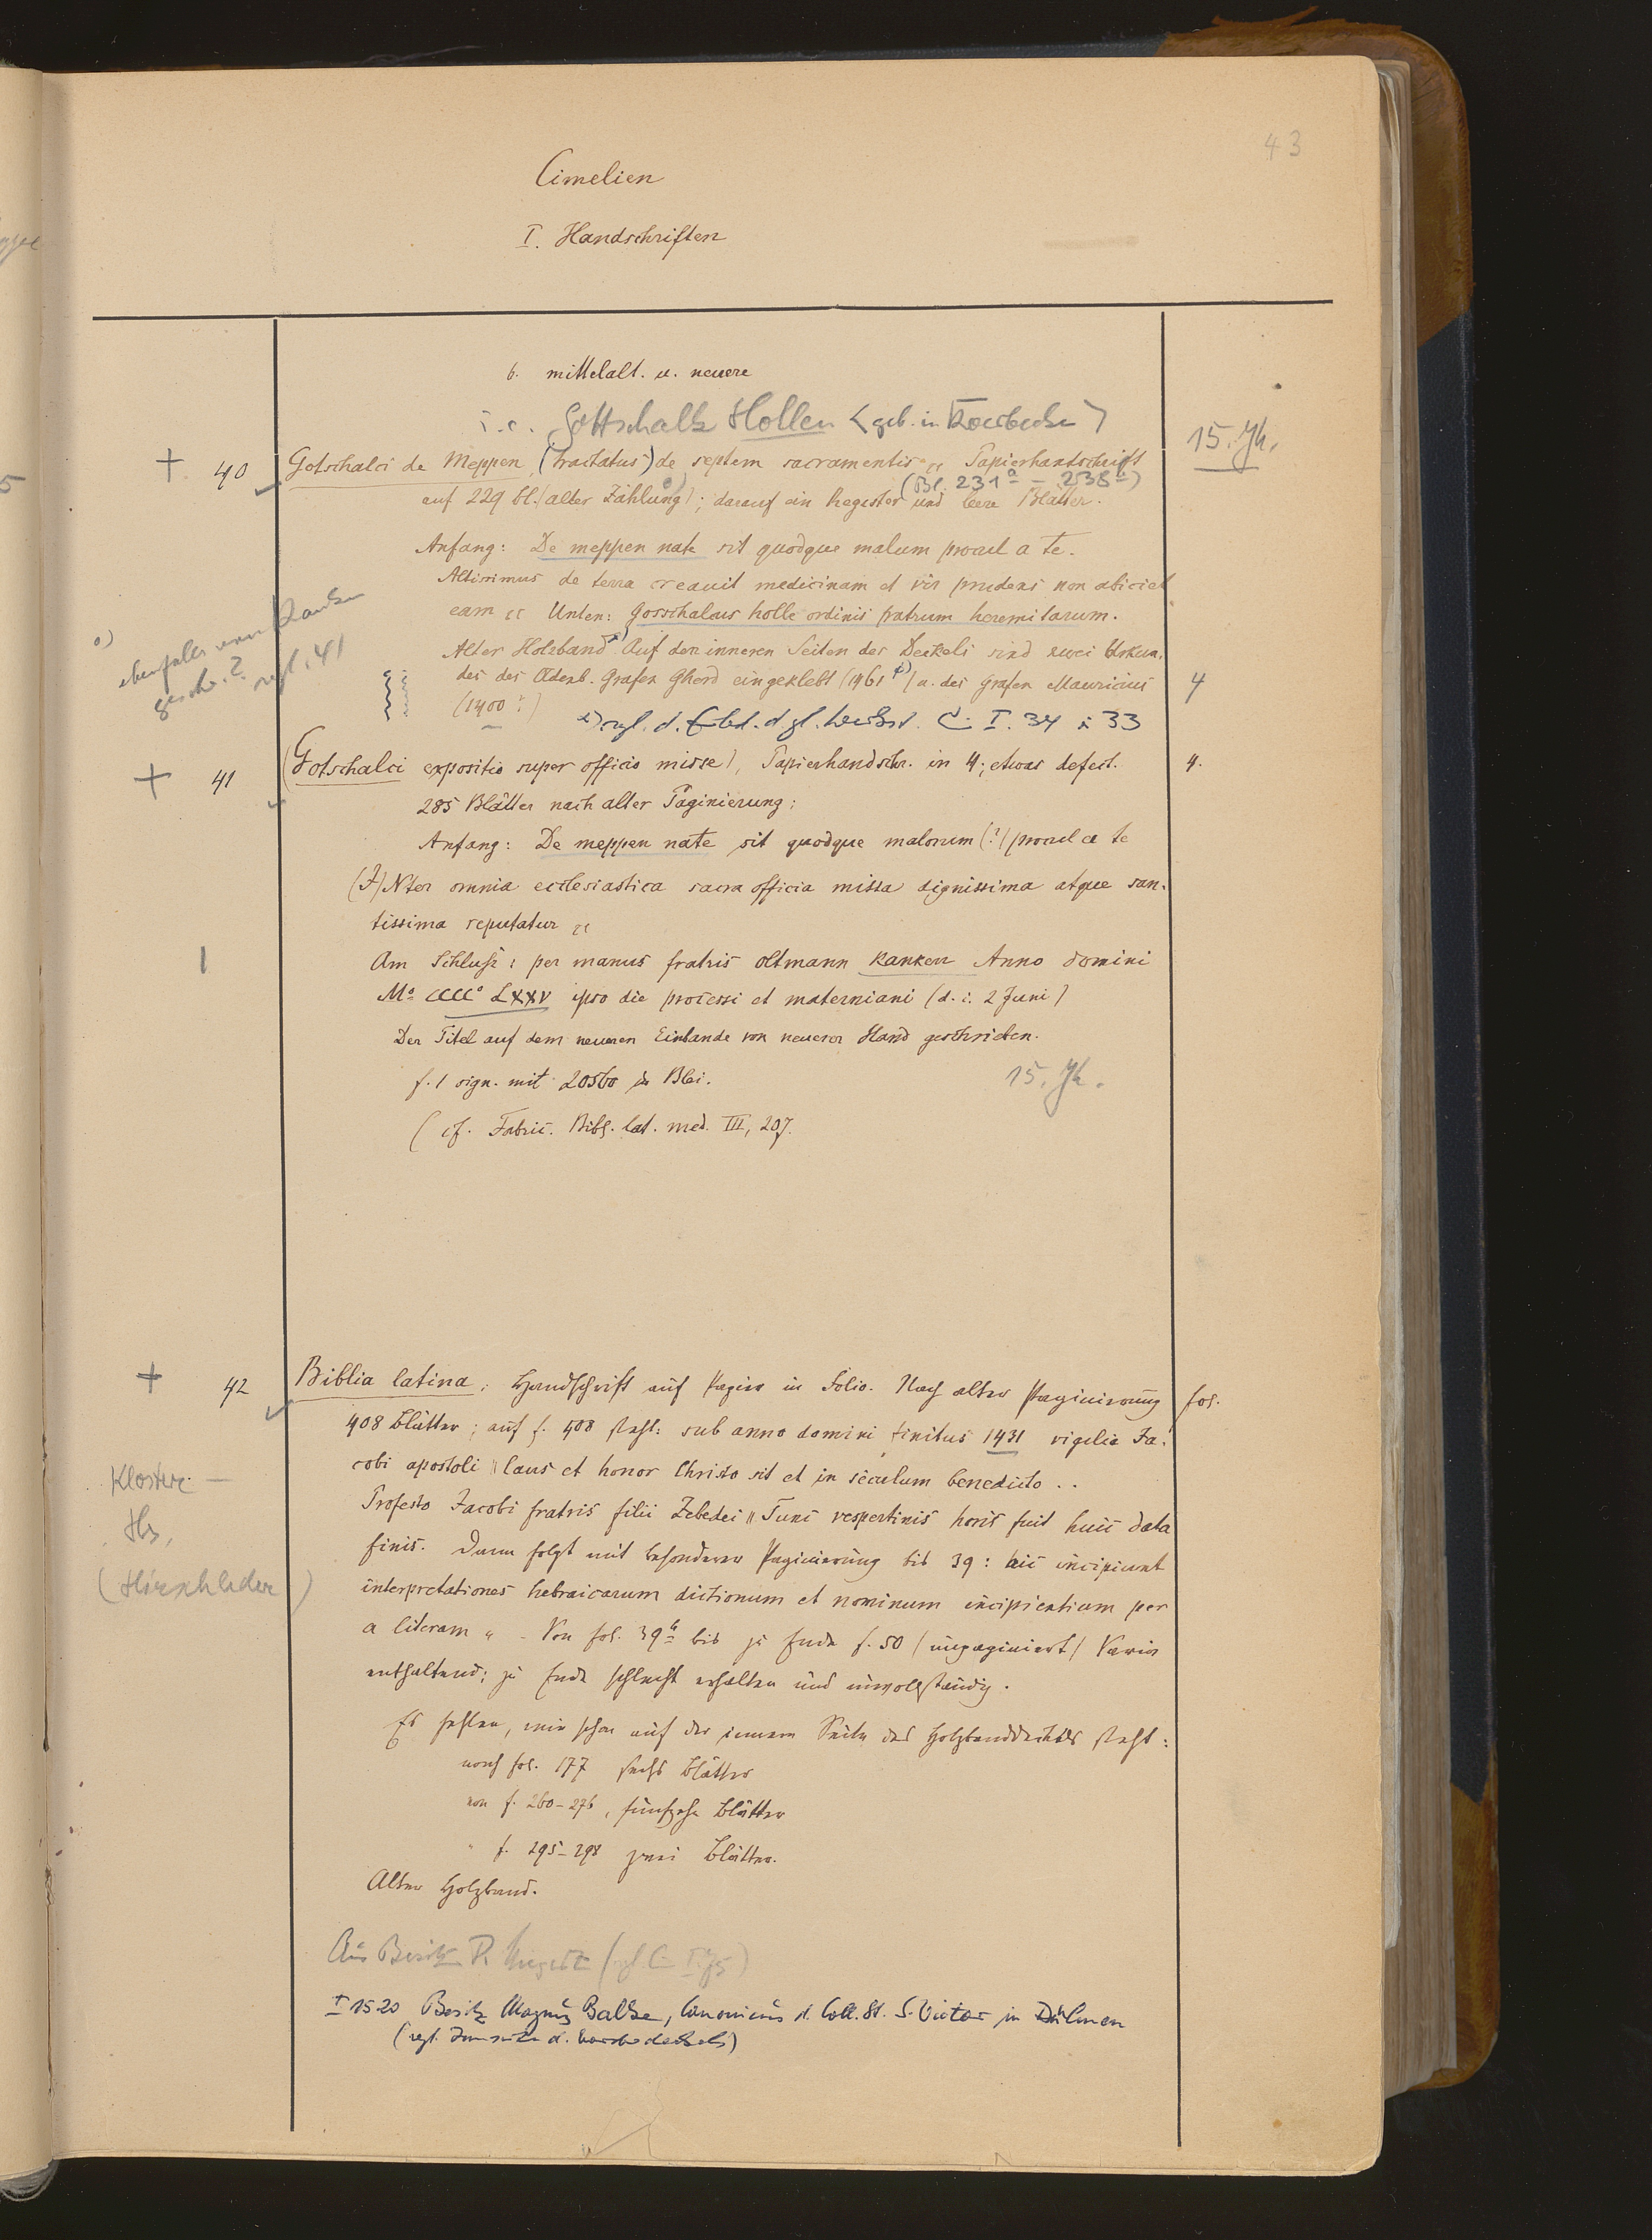 43
Cimelien
I. Handschriften
b. mittelalt. u. neuere
i. e. Gottschalk Hollen <geb. in Koerbecke>
15. Jh.
+ 40 Gotschalci de Meppen (tractatus) de septem sacramentis „ Papierhandschrift
(Bl. 231a – 238a)
auf 229 bl. (alter Zählung) o); darauf ein Register und leere Blätter.
Anfang: De meppen nate sit quodque malum procul a te.
Altissimus de terra creavit medicinam et vir prudens non abiciet
eam „ Unten: Gosschalcus holle ordinis fratrum heremitarum.
o) ebenfalls von Kanken
geschr.? vgl. 41
Alter Holzband x) Auf den inneren Seiten der Deckels sind zwei Urkun-
den des Oldenb. Grafen Gherd eingeklebt (1461 ?) u. des Grafen Mauricius 4
(1400 ?)
x) vgl. d. d. gl. C. I. 34 u. 33
+ 41 (Gotschalci expositio super officio misse), Papierhandschr. in 4; etwas defect. 4.
285 Blätter nach alter Paginierung:
Anfang: De meppen nate sit quodque malorum (?) procul a te
(I)Nter omnia ecclesiastica sacra officia missa dignissima atque sanc-
tissima reputatur „
Am Schluß: per manus fratris oltmann kanken Anno domini
Mo CCCCo LXXV ipso die processi et materniani (d. i. 2 Juni)
Der Titel auf dem neueren Einbande von neuerer Hand geschrieben.
f. 1 sign. mit 20560 in Blei. 15. Jh.
(cf. Fabric. Bibl. lat. med. III, 207.
+ 42 Biblia latina; Handschrift auf Papier in Folio. Nach alter Paginierung fol.
408 Blätter; auf f. 408 steht: sub anno domini finitus 1431 vigilia Ja-
cobi apostoli || laus et honor Christo sit et in seculum benedicto ..
Profesto Jacobi fratris filii Zebedei || Tunc vespertinis horis fuit huic data
finis. Dann folgt mit besonderer Paginierung bis 39: hic incipiunt
interpretationes hebraicarum dictionum et nominum incipientium per
a literam „ – Von fol. 39b bis zu Ende f. 50 (unpaginiert) Varia
enthaltend; zu Ende schlecht erhalten und unvollständig.
Kloster-
Hs.
(Hirschleder)
Es fehlen, wie schon auf der innern Seite des Holzbanddeckels steht:
nach fol. 177 sechs Blätter
von f. 260–276, fünfzehn Blätter
" f. 295–298 zwei Blätter.
Alter Holzband.
Aus Besitz
I 1520 Besitz Magnus Balke, Canonicus d. Coll. St. S. Victor in Dülmen
(vgl. Innenseite d. Vorderdeckels)